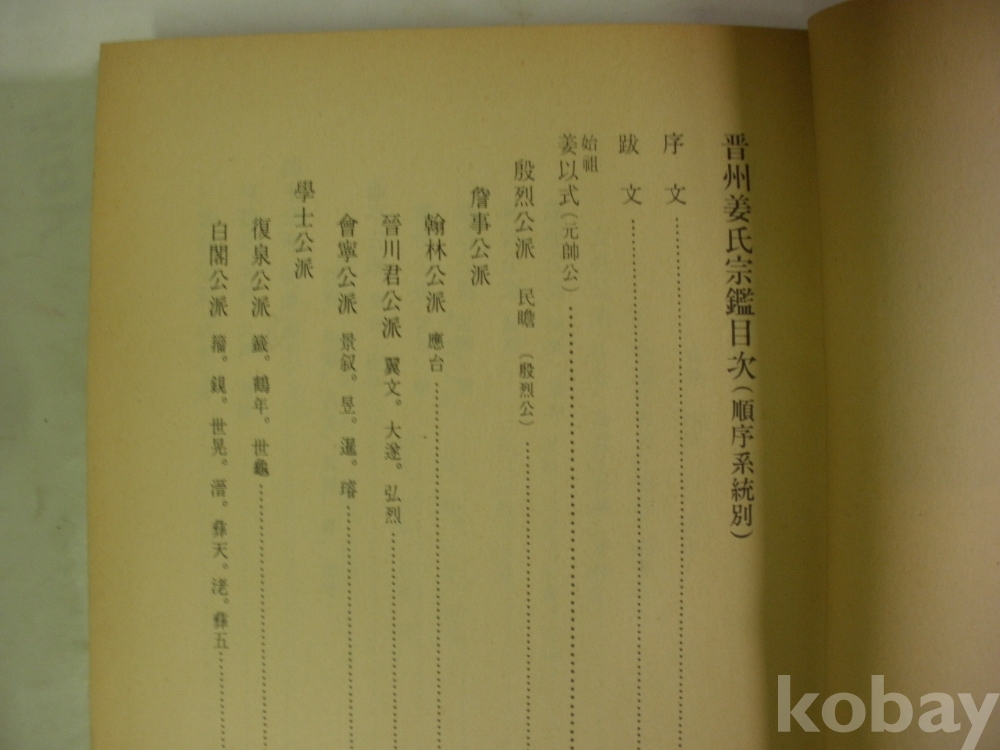 晋州姜氏宗鑑目次(順序系統別)
序文
跋文
始祖
姜以式(元帥公)
殷烈公派 民瞻 (殷烈公)
詹事公派
翰林公派 應台
晉川君公派 翼文。大遂。弘烈
會寧公派 景叙。昱。暹。璿
學士公派
復泉公派 籤。鶴年。世龜
白閣公派 鋧。世晃。彝天。彝五
kobay